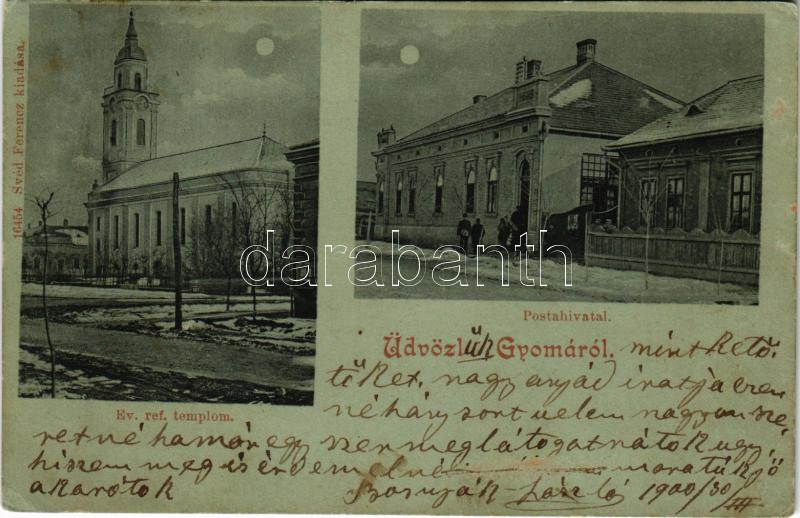 16454 Svéd Ferencz kiadása.
darabanth
Ev. ref. templom.
Postahivatal.
Üdvözlük Gyomáról. mint kető
tőket, nagy anyád iratja ezen
néhány sort velem nagyon sze-
retné ha már egy szer meglátogatnátok ugy
hiszem meg is érdemelné maratuk jó
akarótok László 1900/30/III